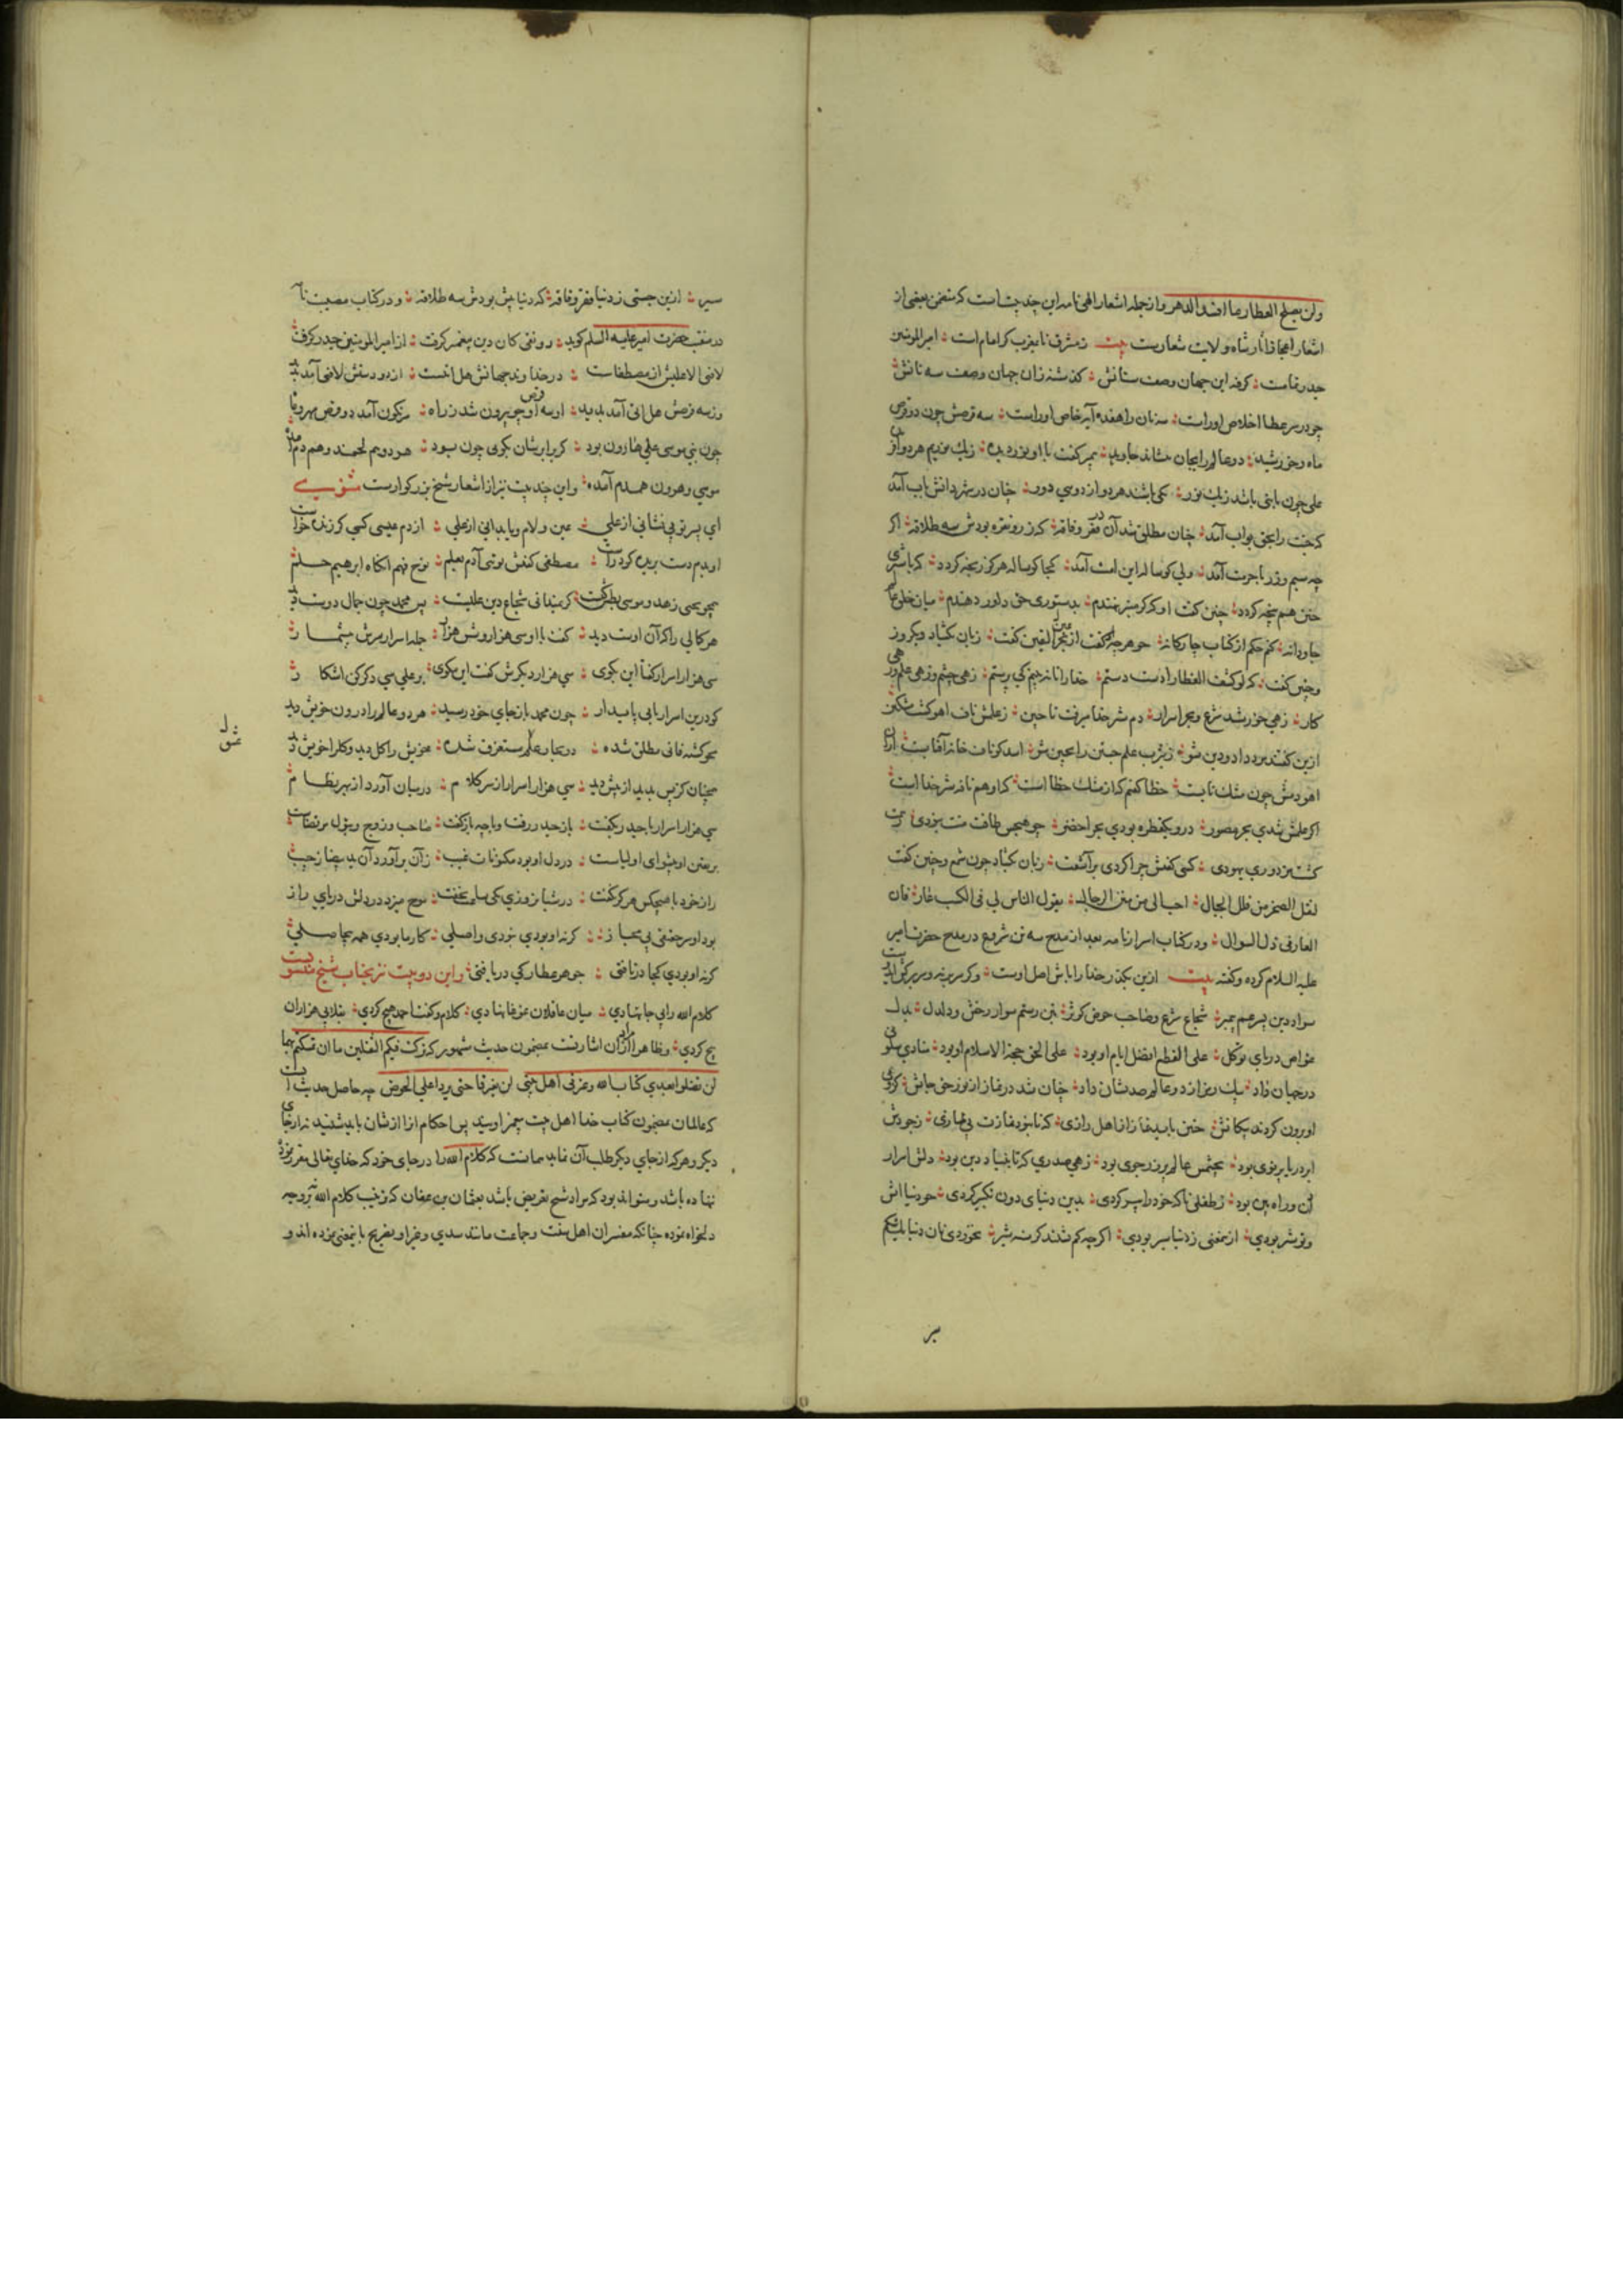 ولن یصلح العطار ما افسد الدهر و از جمله اشعار الهی نامه این چند بیت است که متضمن بعضی از
اشعار اعجاز آثار شاه ولایت شعارست بیت ز مشرق تا بمغرب گر امام است امیر المومنین
حیدر تمامست گرفته این جهان وصف سنانش گذشته زان جهان وصف سه نانش
چو در سر عطا اخلاص اوراست سه نان را هفده آیه خاص اوراست سه قرصش چون دو قرص
ماه و خورشید دو عالم را بخوان بنشاند جاوید پیمبر گفت با او نور دیده ز یک نوریم هر دو آفریده
علی چون با نبی باشد ز یک نور یکی باشند هر دو از دویی دور چنان در شهر دانش باب آمد
که جنت را بحق بواب آمد چنان مطلق شد آن در فقر و فاقه که زر و نقره بودش سه طلاقه اگر
چه سیم و زر با حرمت آمد ولی گوساله این امت آمد کجا گوساله هرگز رنجه گردد که با شیری
چنین هم پنجه گردد چنین گفت او که گر منبر نهندم بدستوری حق داور دهندم میان خلق عالم
جاودانه کنم حکم از کتاب چارگانه چو هرچه گفت از عین الیقین گفت زبان بگشاد و یک روز
و چنین گفت که لو کشف الغطا را دست دستم خدا را تا نه بینم کی پرستم زهی چشم و زهی علم و زهی
کار زهی خورشید شرع و بحر اسرار دم شیر خدا میرفت تا چین ز علمش ناف آهو گشت مشکین
ازین گفتند مرد داد و دین شو ز یثرب علم جستن را بچین شو اسد کو ناف خانه آفتابست
آهو دمش چون مشک نابست خطا گفتم که از مشک خطا است که او هم نافه شیر خدا است
اگر علمش شدی بحر مصور درو یک قطره بودی بحر اخضر چو هیچش طاقت منت نبودی ز همت
گشت مزدور یهودی کسی گفتش چرا کردی برآشفت زبان بگشاد چون شمع و چنین گفت
لنقل الصخر من قلل الجبال احب الی من منن الرجال یقول الناس لی فی الکسب عار فان
العار فی ذل السوال و در کتاب اسرارنامه بعد از مدح سه تن شروع در مدح حضرت امیر
علیه السلام کرده و گفته بیت
سوار دین پسر عم پیمبر شجاع شرع و صاحب حوض کوثر بتن رستم سوار رخش و دلدل بدل
غواص دریای توکل علی القطع افضل ایام او بود علی الحق حجة الاسلام او بود منادی سلونی
در جهان داد بیک رمز از دو عالم صد نشان داد چنان شد در نماز از نور حق جانش که از پی
او برون کردند پیکانش چنین باید نماز از اهل رازی که تا نبود نمازت بی نمازی ز جودش
ابر دریا پرتوی بود بچشمش عالم پر زر جوی بود زهی صدری که تا بنیاد دین بود دلش اسرار
دان و راه بین بود ز طفلی تا که خود را پیر کردی بدین دنیای دون تکبیر کردی چو دنیا آتش
و تو شیر بودی از آن معنی ز دنیا سیر بودی اگرچه کم نشیند گرسنه شیر نخوردی نان دنیا یک شکم
سیر
سیر ازین جستی ز دنیا فقر و فاقه که دنیا پیش بودش سه طلاقه و در کتاب مصیبت نامه
در منقبت حضرت امیر علیه السلم گوید رونقی کان دین پیغمبر گرفت از امیر المومنین حیدر گرفت
لا فتی الا علیش از مصطفاست در خداوند جهانش هل اتاست از دو دستش لا فتی آمد پدید
وز سه قرصش هل اتی آمد پدید او سه قرص چو بیرون شد ز راه سرنگون آمد دو قرص مهر و ماه
چون نبی موسی علی هارون بود گر برابرشان نگوی چون بود هر دو هم لحمند و هم دم آمده
موسی و هرون همدم آمده و این چند بیت نیز از اشعار شیخ بزرگوارست مثنوی
ای پسر تو بی نشانی از علی عین و لام و یا بدانی از علی از دم عیسی کسی گر زنده خواست
او بدم دست بریده کرد راست مصطفی گفتش توئی آدم بعلم نوح فهم آنگاه ابرهیم حلم
همچو یحیی زهد و موسی بطش گشت گر ندانی شجاع دین علیست پس محمد چون جمال دوست دید
هر کمالی را که آن اوست دید گفت با او سی هزار و شش هزار جمله اسرار مرش بیشمار
سی هزار اسرار گفتا این بگوی سی هزار دیگرش گفت این مگوی بر علی سی دگر کن آشکار
کو درین اسرار باشد پایدار چون محمد باز جای خود رسید هر دو عالم را درون خویش دید
محو گشته فانی مطلق شده در بحار علم مستغرق شده خویش را کل دید و کل را خویش دید
همچنان کز پس بدید از پیش دید سی هزار اسرار از سر کلام در بیان آورد از بهر نظام
سی هزار اسرار با حیدر بگفت باز حیدر رفت و با چه باز گفت صاحب و زوج بتول مرتضاست
بر یقین او پیشوای اولیاست در دل او بود مکنونات غیب زان برآورد آن ید بیضا ز جیب
راز خود با هیچکس هرگز نگفت در شبانروزی یکی ساعت نخفت موج میزد در دلش دریای راز
بود او سر حقیقی بی مجاز گر نه او بودی نبودی واصلی کار ما بودی همه بیحاصلی
گر نه او بودی کجا دریافتی جوهر عطار کی دریافتی و این دو بیت نیز بجناب شیخ منسوبست
کلام الله را بی جا نهادی میان عاقلان غوغا نهادی کلام و گفت احمد هیچ کردی بتلابی هزاران
پیچ کردی و ظاهرا مراد از آن اشارتست بمضمون حدیث مشهور که ترکت فیکم الثقلین ما ان تمسکتم بهما
لن تضلوا بعدی کتاب الله و عترتی اهل بیتی لن یفترقا حتی یردا علی الحوض چه حاصل حدیث آنست
که عالمان بمضمون کتاب خدا اهل بیت پیغمبر اویند پس احکام آنرا از ایشان باید شنید نه از جای
دیگر و هر که از جای دیگر طلب آن نماید چنانست که کلام الله را در جای خود که خدای تعالی مقرر نموده
ننهاده باشد و میتواند بود که مراد شیخ تعریض باشد بعثمان بن عفان که ترتیب کلام الله بر وجه
دلخواه نموده چنانکه مفسران اهل سنت و جماعت مانند سدی و غیر او تصریح باینمعنی نموده اند و